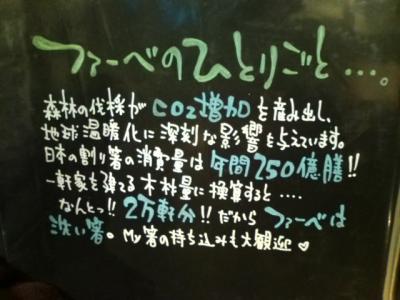 ファーべのひとりごと…。
森林の伐採がCO2増加を産み出し、
地球温暖化に深刻な影響を与えています。
日本の割り箸の消費量は年間250億膳!!
一軒家を建てる木材量に換算すると….
なんとっ!!2万軒分!!だからファーべは
洗い箸。My箸の持ち込みも大歓迎♡